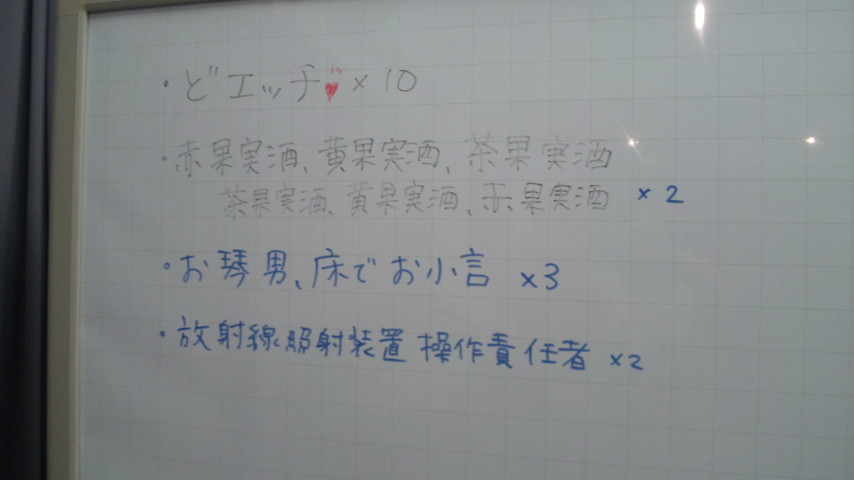 ・どエッチ♥×10
・赤果実酒、黄果実酒、茶果実酒
茶果実酒、黄果実酒、赤果実酒 ×2
・お琴男、床でお小言 ×3
・放射線照射装置操作責任者 ×2